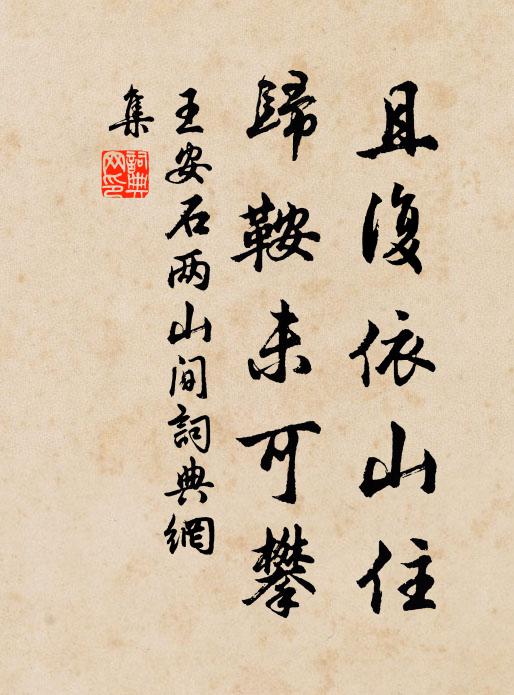 且復依山住
歸鞍未可攀
王安石两山间詞典網
集
詞典
网印